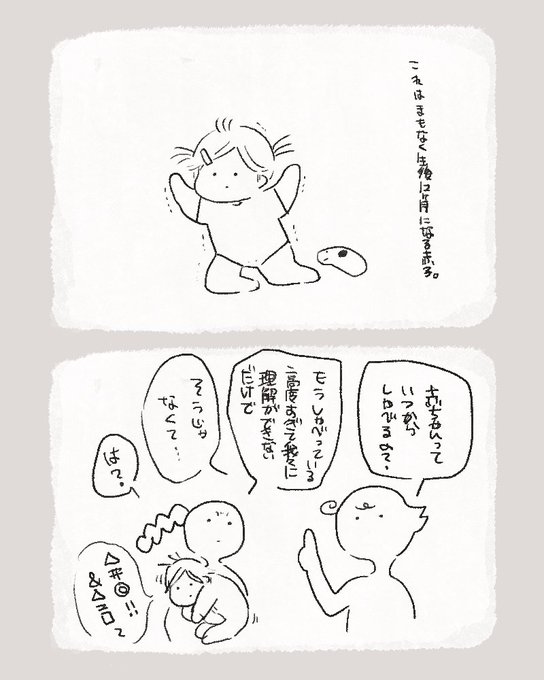 これはまもなく生後12ヶ月になる赤子。
赤ちゃんって
いつから
しゃべるの？
もうしゃべっている
高度すぎて我々に
理解ができない
だけで
そうじゃ
なくて…
は？
△#◎!!
&△ニロて